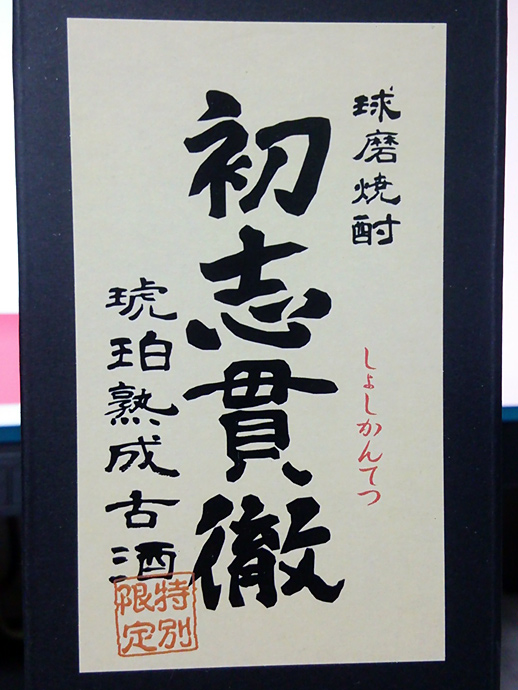 球磨焼酎
しょしかんてつ
初志貫徹
琥珀熟成古酒
特別
限定